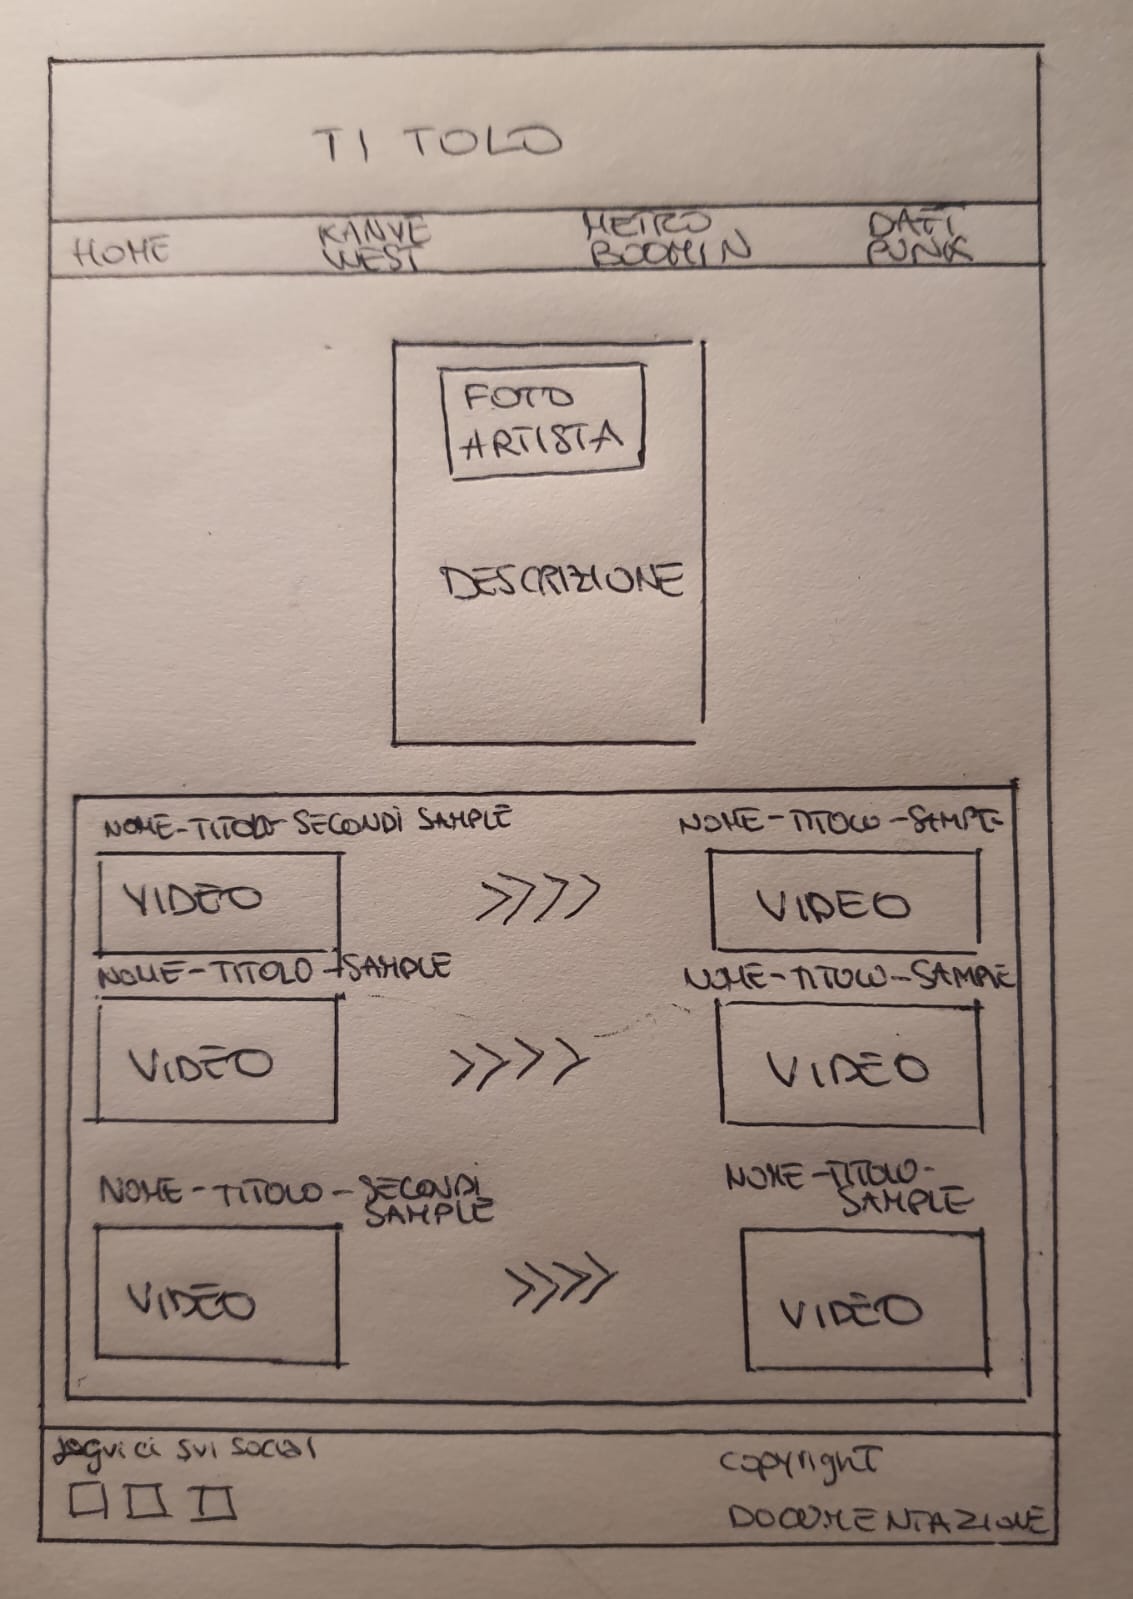 TITOLO
HOME KANYE WEST METRO BOOMIN DAFT PUNK
FOTO
ARTISTA
DESCRIZIONE
NOME-TITOLO-SECONDI SAMPLE NOME-TITOLO-SAMPLE
VIDEO >>>> VIDEO
NOME-TITOLO-SAMPLE NOME-TITOLO-SAMPLE
VIDEO >>>> VIDEO
NOME-TITOLO-SECONDI SAMPLE NOME-TITOLO-SAMPLE
VIDEO >>>> VIDEO
seguici sui social copyright
DOCUMENTAZIONE